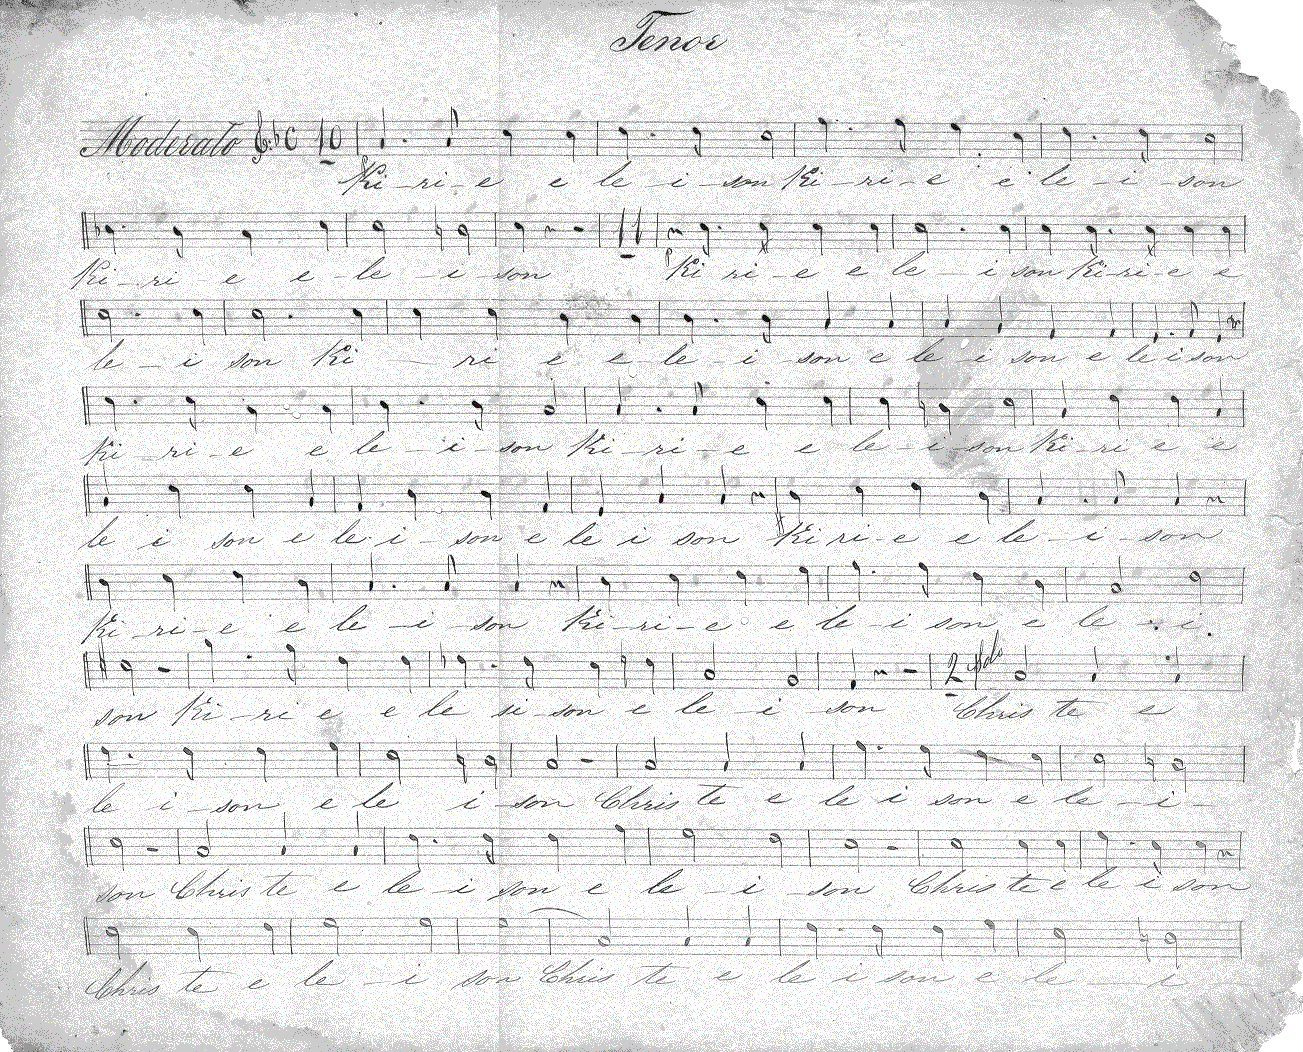 Tenor
Moderato C 10
Ki - ri - e e le - i - son Ki - ri - e e le - i - son
Ki - ri e e - le - i - son 11 Ki ri - e e le - i son Ki - ri - e e
le - i son Ki - ri e e - le - i - son e le i son e le i son
Ki - ri - e e le - i - son Ki - ri - e e le - i - son Ki - ri e e
le i son e le - i - son e le i son Ki ri - e e le - i - son
Ki - ri - e e le - i - son Ki - ri - e e le - i son e le - i
son Ki - ri e e le si son e le - i - son 2 Solo Chris te e
le i - son e le i - son Chris te e le i son e le - i -
son Chris te e le - i son e le - i - son Chris te e le i son
Chris te e le - i son Chris te e le i son e le - i